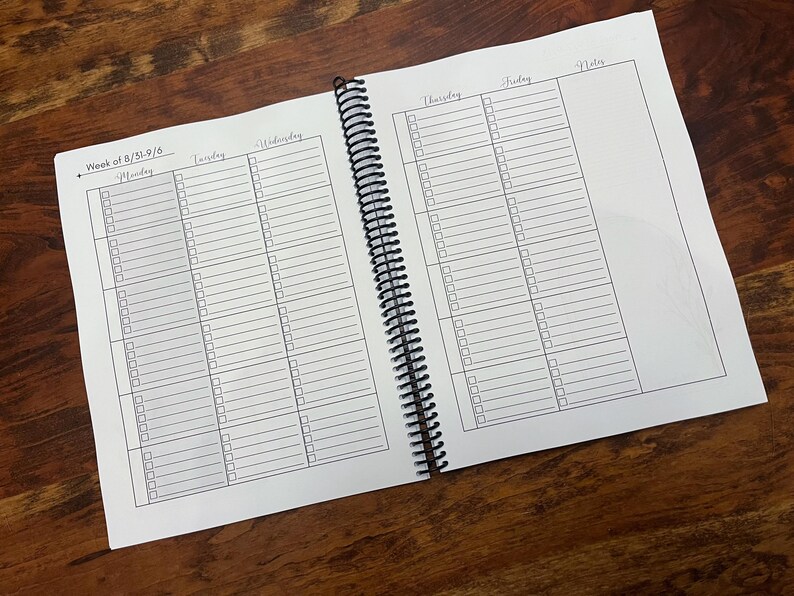 Week of 8/31-9/6
Monday
Tuesday
Wednesday
Thursday
Friday
Notes